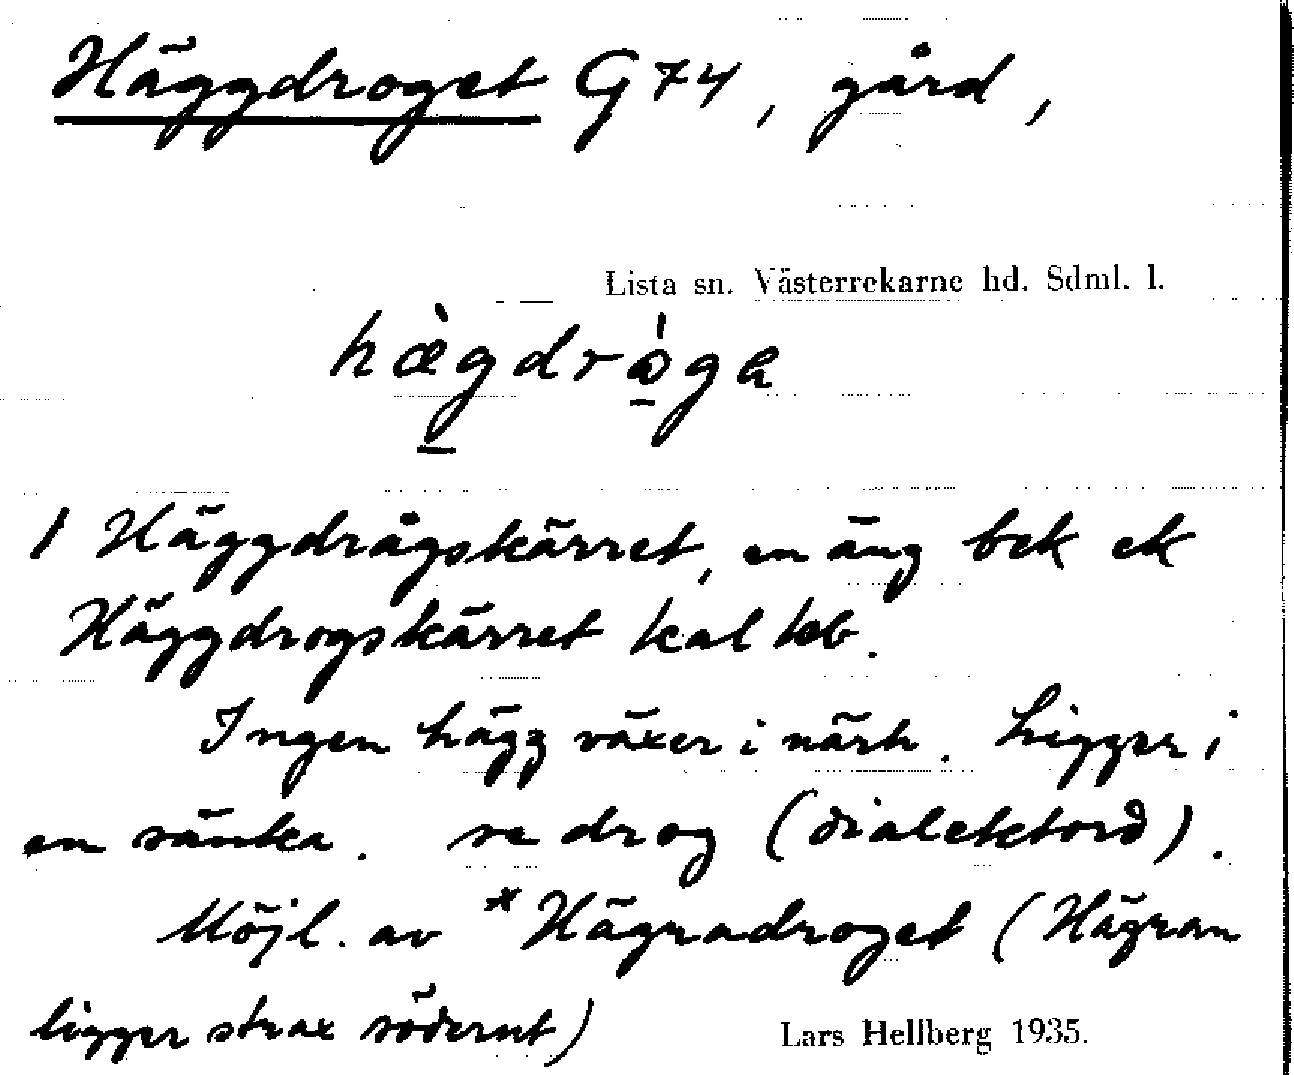 Häggdroget G74, gård,
Lista sn. Västerrekarne hd. Sdml. l.
hæ̀gdrǻga
1 Häggdrågskärret, en äng bek ek
Häggdrogskärret kal kb.
Ingen hägg växer i närh. Ligger i
en sänka. se drog (dialektord).
Möjl. av *Hägradroget (Hägran
ligger strax söderut)
Lars Hellberg 1935.